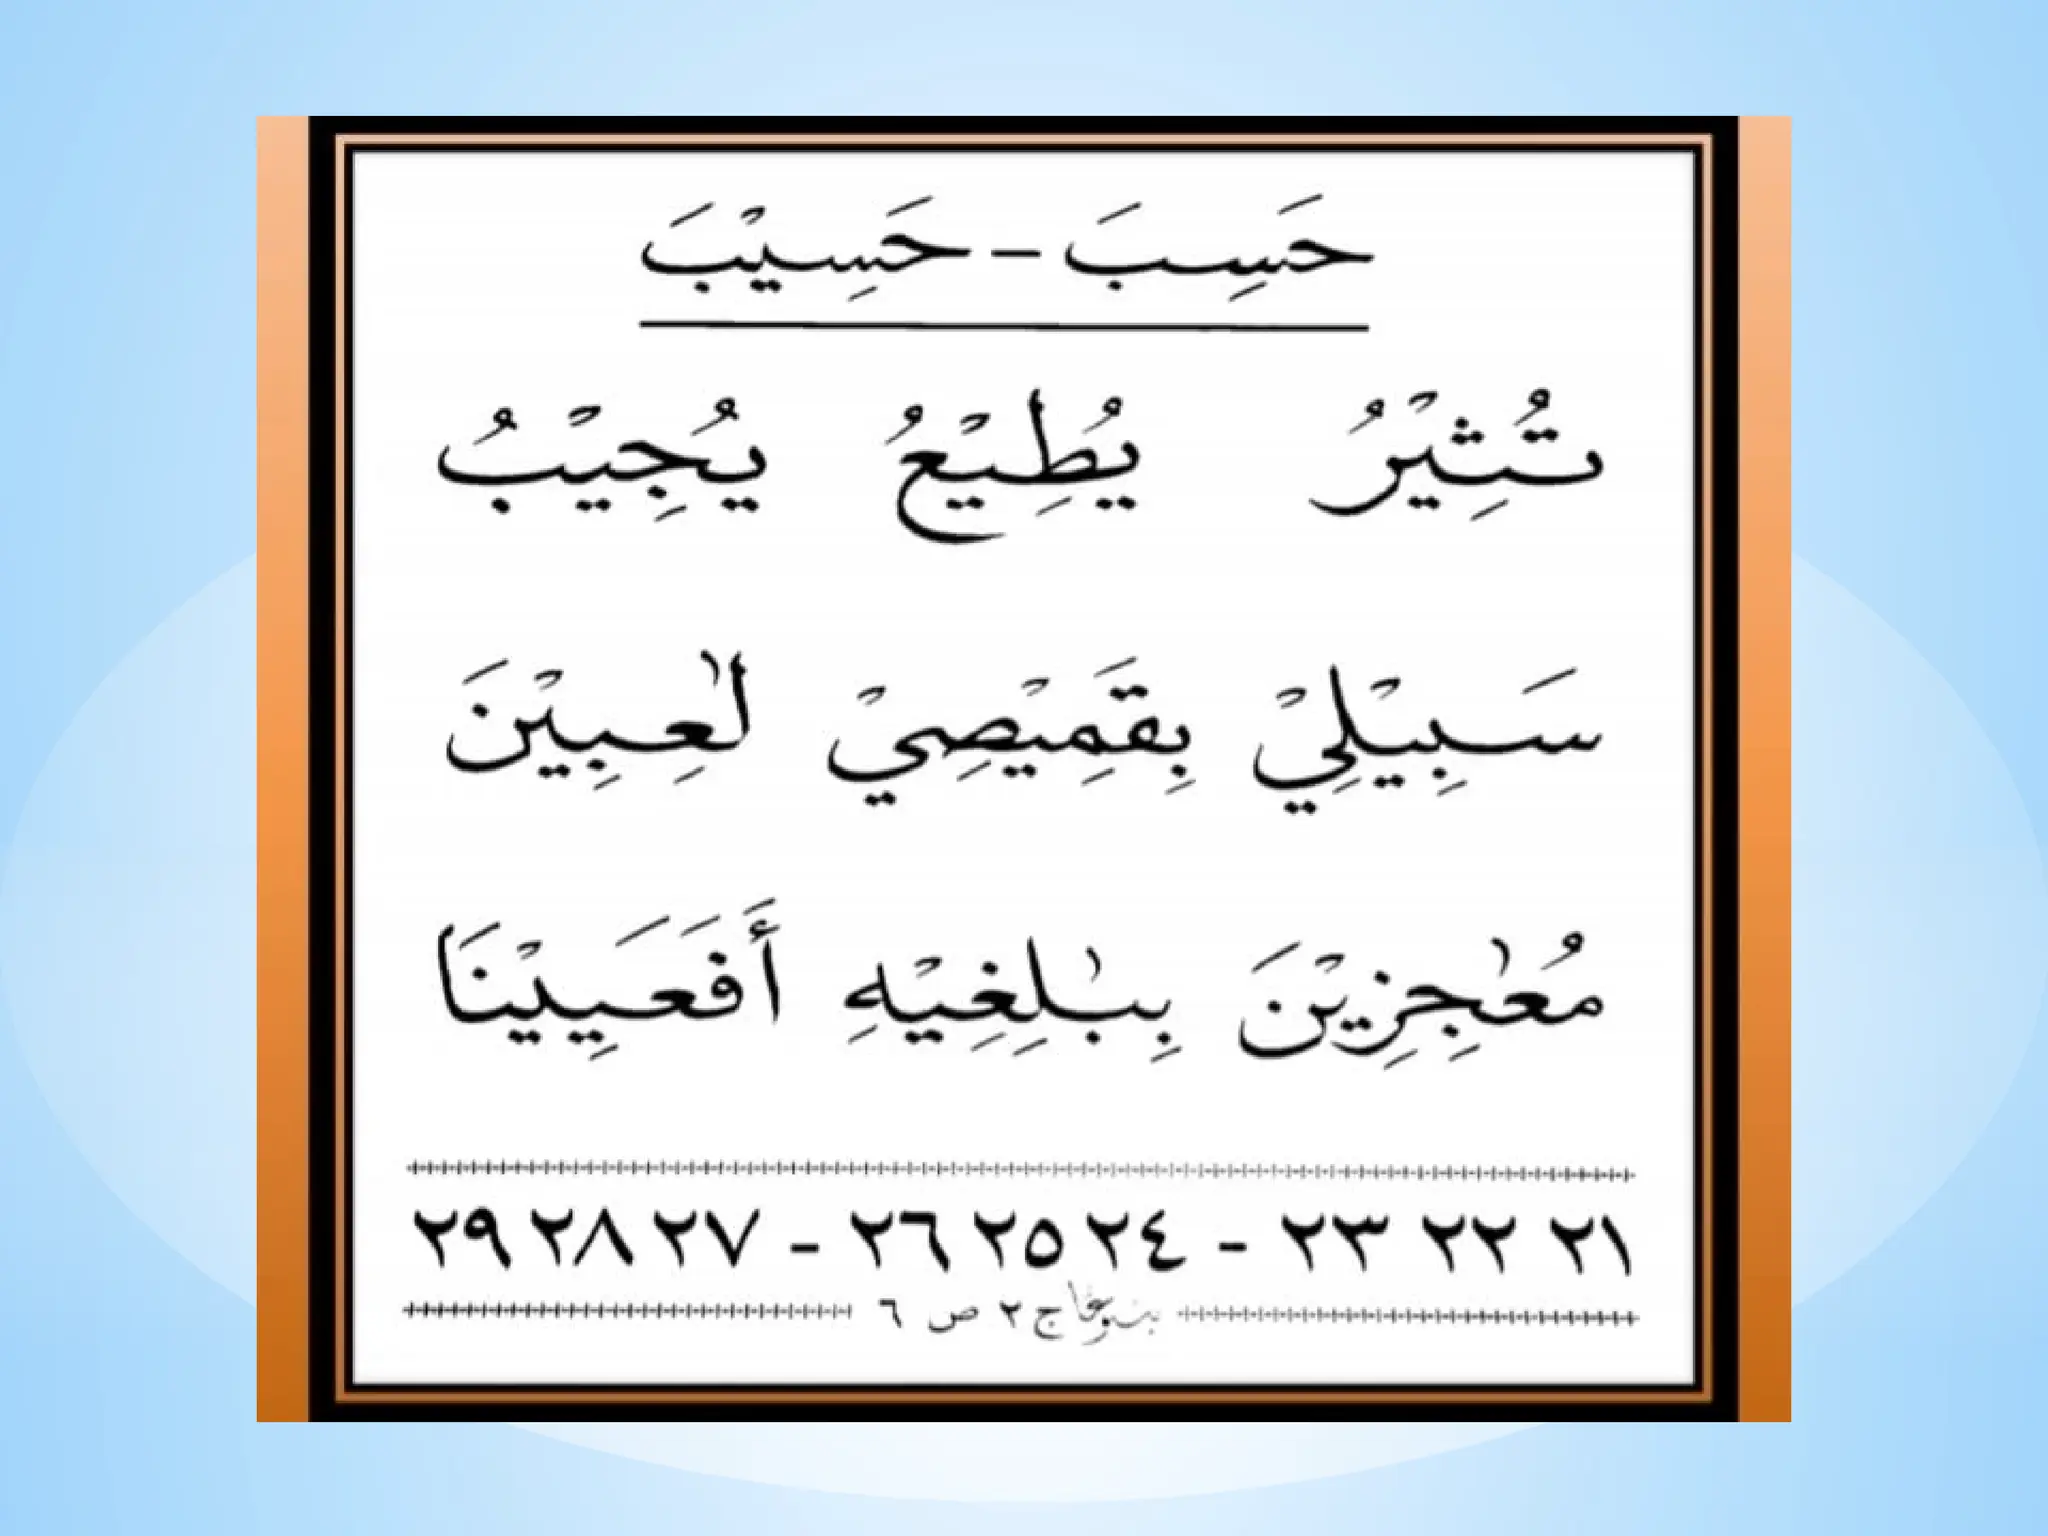 حَسِبَ - حَسِيْبَ
تُثِيْرُ يُطِيْعُ يُجِيْبُ
سَبِيْلِيْ بِقَمِيْصِيْ لٰعِبِيْنَ
مُعٰجِزِيْنَ بِبٰلِغِيْهِ أَفَعَيِيْنَا
٢١ ٢٢ ٢٣ - ٢٤ ٢٥ ٢٦ - ٢٧ ٢٨ ٢٩
ج ٢ ص ٦